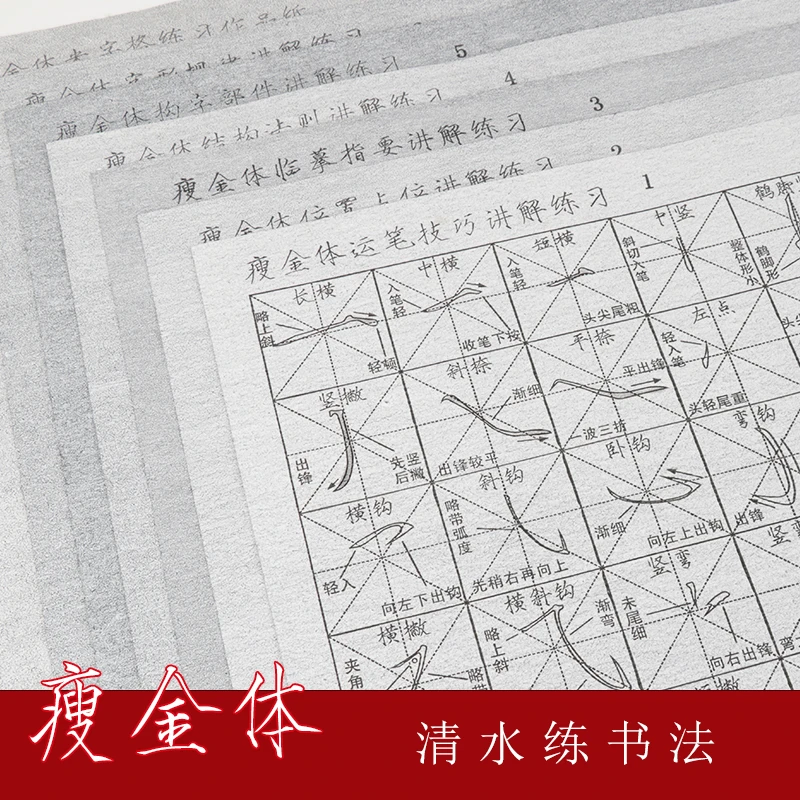 瘦金体米字格练习作品纸
瘦金体字形概述讲解练习
5
瘦金体构字部件讲解练习
4
瘦金体结构法则讲解练习
3
瘦金体临摹指要讲解练习
2
瘦金体位置上位讲解练习
1
瘦金体运笔技巧讲解练习
长横
略上斜
轻顿
中横
入笔轻
收笔下按
短横
入笔轻
头尖尾粗
中竖
斜切入笔
整体形小
鹤脚
鹤脚形
竖撇
出锋
先竖后撇
斜捺
渐细
出锋较平
平捺
平出锋
一波三折
左点
轻入笔
头轻尾重
头尖
横钩
轻入
向左下出钩
斜钩
略带弧度
先稍右再向上
卧钩
渐细
向左上出钩
弯钩
出锋
横撇
夹角
横斜钩
略上斜
渐弯
竖弯
末尾细
向右出锋
竖弯
瘦金体
清水练书法